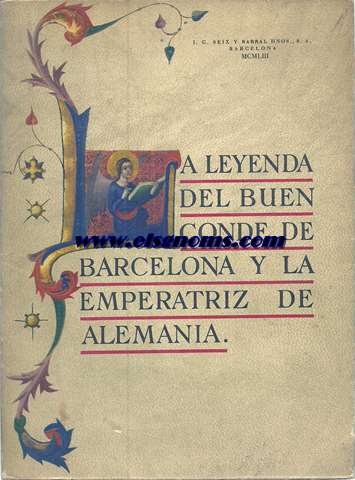 I. G. SEIX Y BARRAL HNOS., S. A.
BARCELONA
MCMLIII
LA LEYENDA
DEL BUEN
CONDE DE
www.elsgnoms.com
BARCELONA Y LA
EMPERATRIZ DE
ALEMANIA.